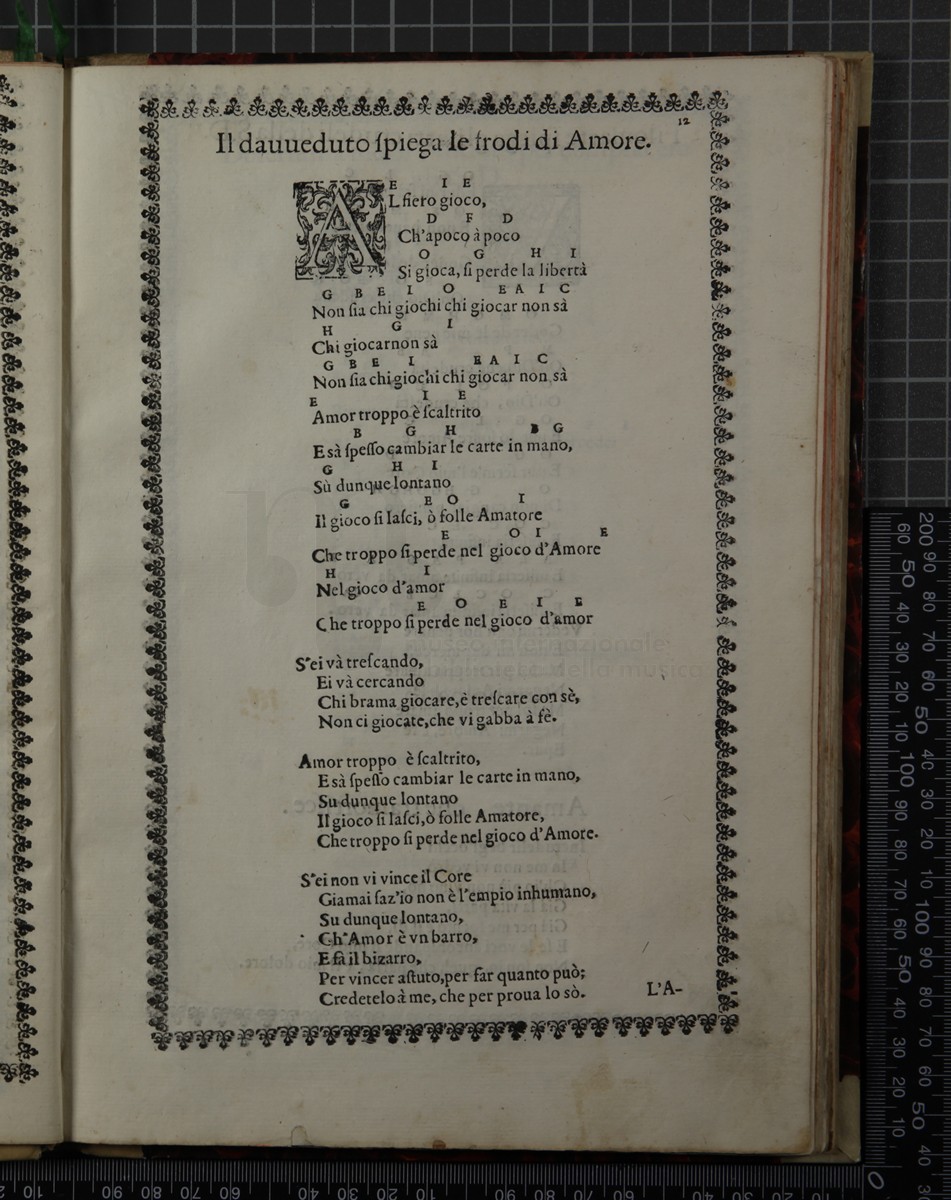 12
Il dauueduto ſpiega le frodi di Amore.
E I E
AL fiero gioco,
D F D
Ch'apoco à poco
O G H I
Si gioca, ſi perde la libertà
G B E I O E A I C
Non ſia chi giochi chi giocar non sà
H G I
Chi giocar non sà
G B E I E A I C
Non ſia chi giochi chi giocar non sà
E I E
Amor troppo è ſcaltrito
B G H B G
E sà ſpeſſo cambiar le carte in mano,
G H I
Sù dunque lontano
G E O I
Il gioco ſi laſci, ò folle Amatore
E O I E
Che troppo ſi perde nel gioco d'Amore
H I
Nel gioco d'amor
E O E I E
Che troppo ſi perde nel gioco d'amor
S'ei và treſcando,
Ei và cercando
Chi brama giocare, è treſcare con sè,
Non ci giocate, che vi gabba à fè.
Amor troppo è ſcaltrito,
E sà ſpeſſo cambiar le carte in mano,
Su dunque lontano
Il gioco ſi laſci, ò folle Amatore,
Che troppo ſi perde nel gioco d'Amore.
S'ei non vi vince il Core
Giamai ſaz'io non è l'empio inhumano,
Su dunque lontano,
Ch'Amor è vn barro,
E fà il bizarro,
Per vincer aſtuto, per far quanto può;
Credetelo à me, che per proua lo sò.
L'A-
museo internazionale
e biblioteca della musica